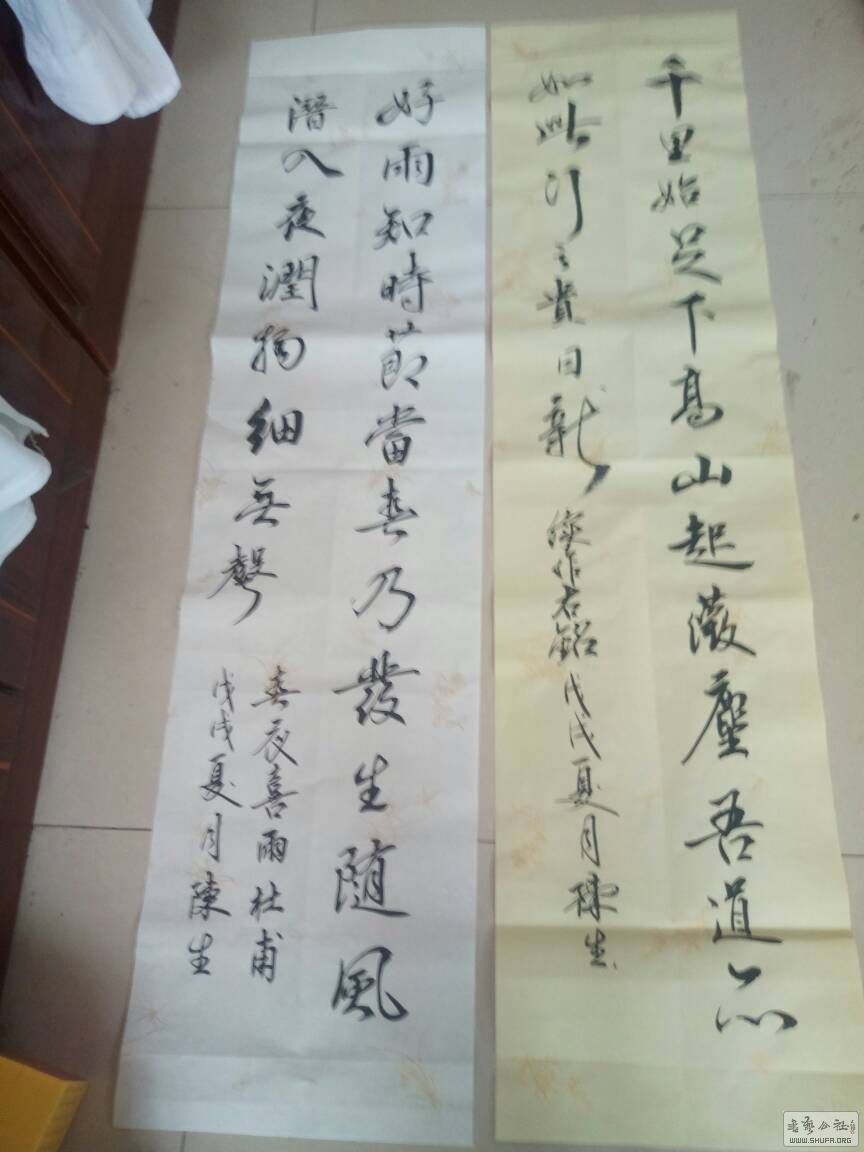 千里始足下高山起微塵吾道亦
如此行之貴日新
座右銘戊戌夏月陳生
好雨知時節當春乃發生隨風
潛入夜潤物細無聲
春夜喜雨杜甫
戊戌夏月陳生
書藝公社
WWW.SHUFA.ORG